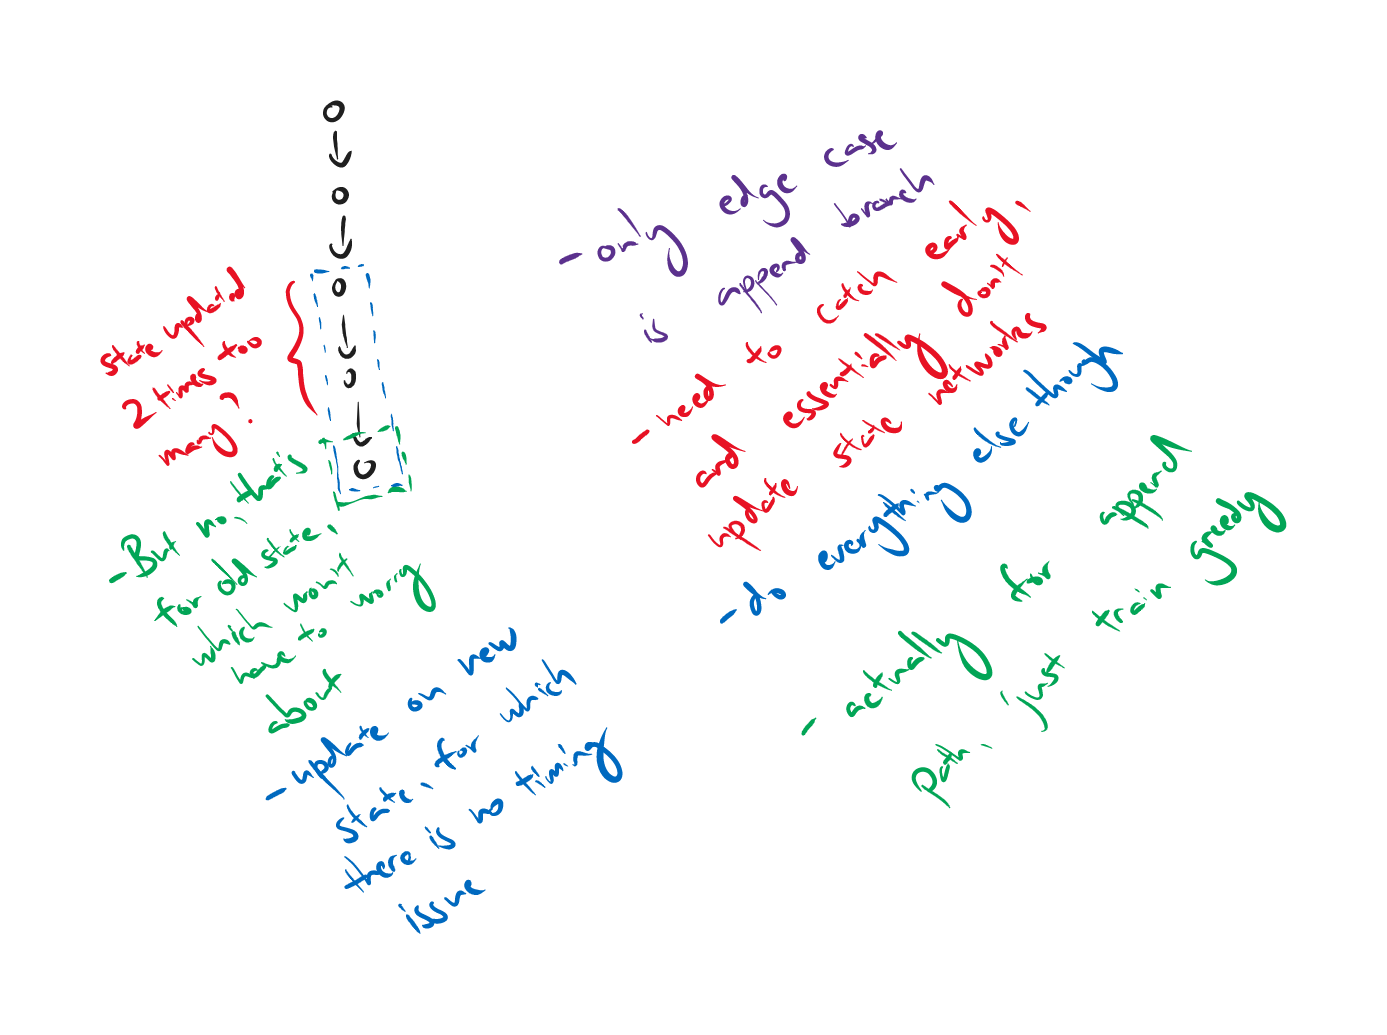 state updated
2 times too
many?
- But no, that's
for old state,
which won't
have to worry
about
- update on new
state, for which
there is no timing
issue
- only edge case
is append branch
- need to catch early,
and essentially don't
update state networks
- do everything else though
- actually for append
path, just train greedy